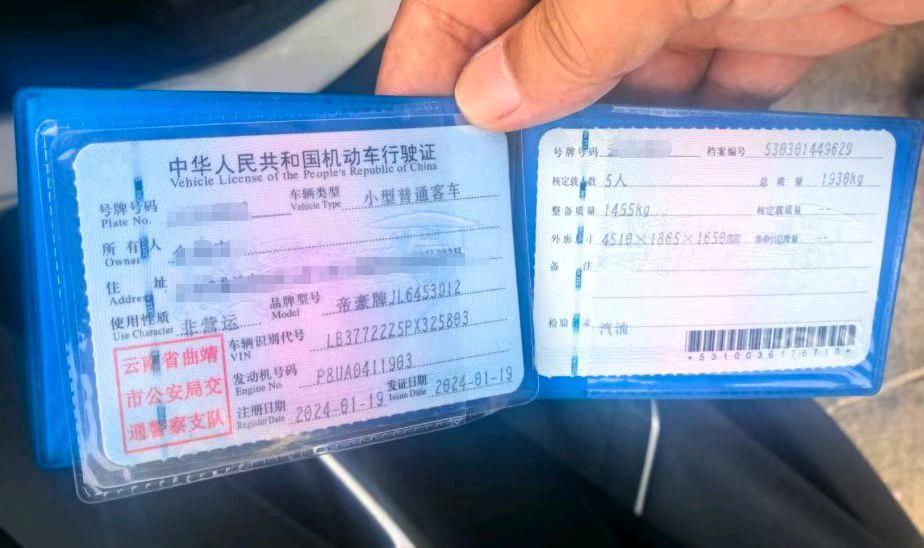 中华人民共和国机动车行驶证
Vehicle License of the People's Republic of China
号牌号码
Plate No.
车辆类型 小型普通客车
Vehicle Type
所有人
Owner
住 址
Address
使用性质 非营运
Use Character
品牌型号 帝豪牌JL6453012
Model
车辆识别代号 LB37722Z5PX325803
VIN
发动机号码 P8UA0411903
Engine No.
注册日期 2024-01-19
Register Date
发证日期 2024-01-19
Issue Date
云南省曲靖
市公安局交
通警察支队
号牌号码 档案编号 530301449629
核定载人数 5人 总质量 1930kg
整备质量 1455kg 核定载质量 --
外廓尺寸 4510×1865×1650mm 准牵引总质量 --
备 注
检验记录 汽油